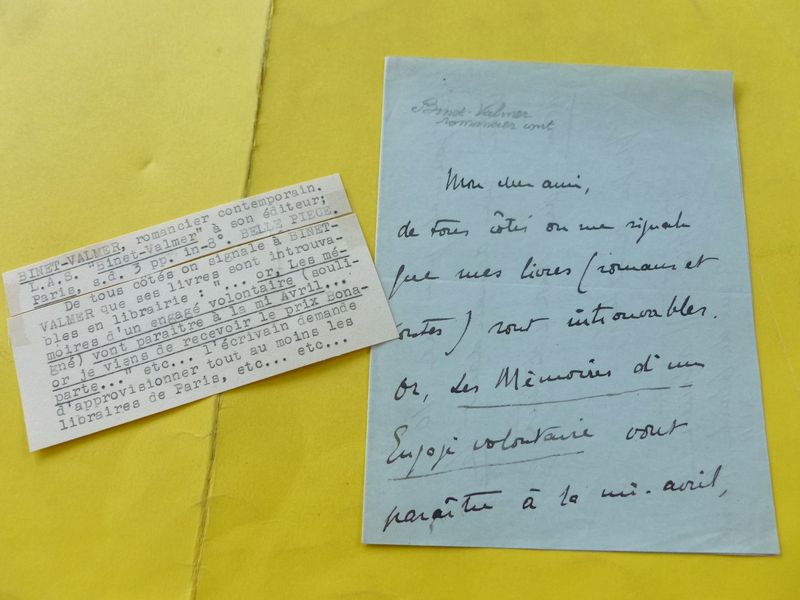 BINET-VALMER, romancier contemporain.
L.A.S. "Binet-Valmer" à son éditeur;
Paris, s.d. 3 pp. in-8°. BELLE PIECE.
De tous côtés on signale à BINET-
VALMER que ses livres sont introuva-
bles en librairie : "... or, Les mé-
moires d'un engagé volontaire (souli-
gné) vont paraître à la mi Avril...
or je viens de recevoir le prix Bona-
parte..." etc... l'écrivain demande
d'approvisionner tout au moins les
libraires de Paris, etc... etc...
Binet-Valmer
romancier cont
Mon cher ami,
de tous côtés on me signale
que mes livres (romans et
contes) sont introuvables.
Or, Les Mémoires d'un
Engagé volontaire vont
paraître à la mi-avril,